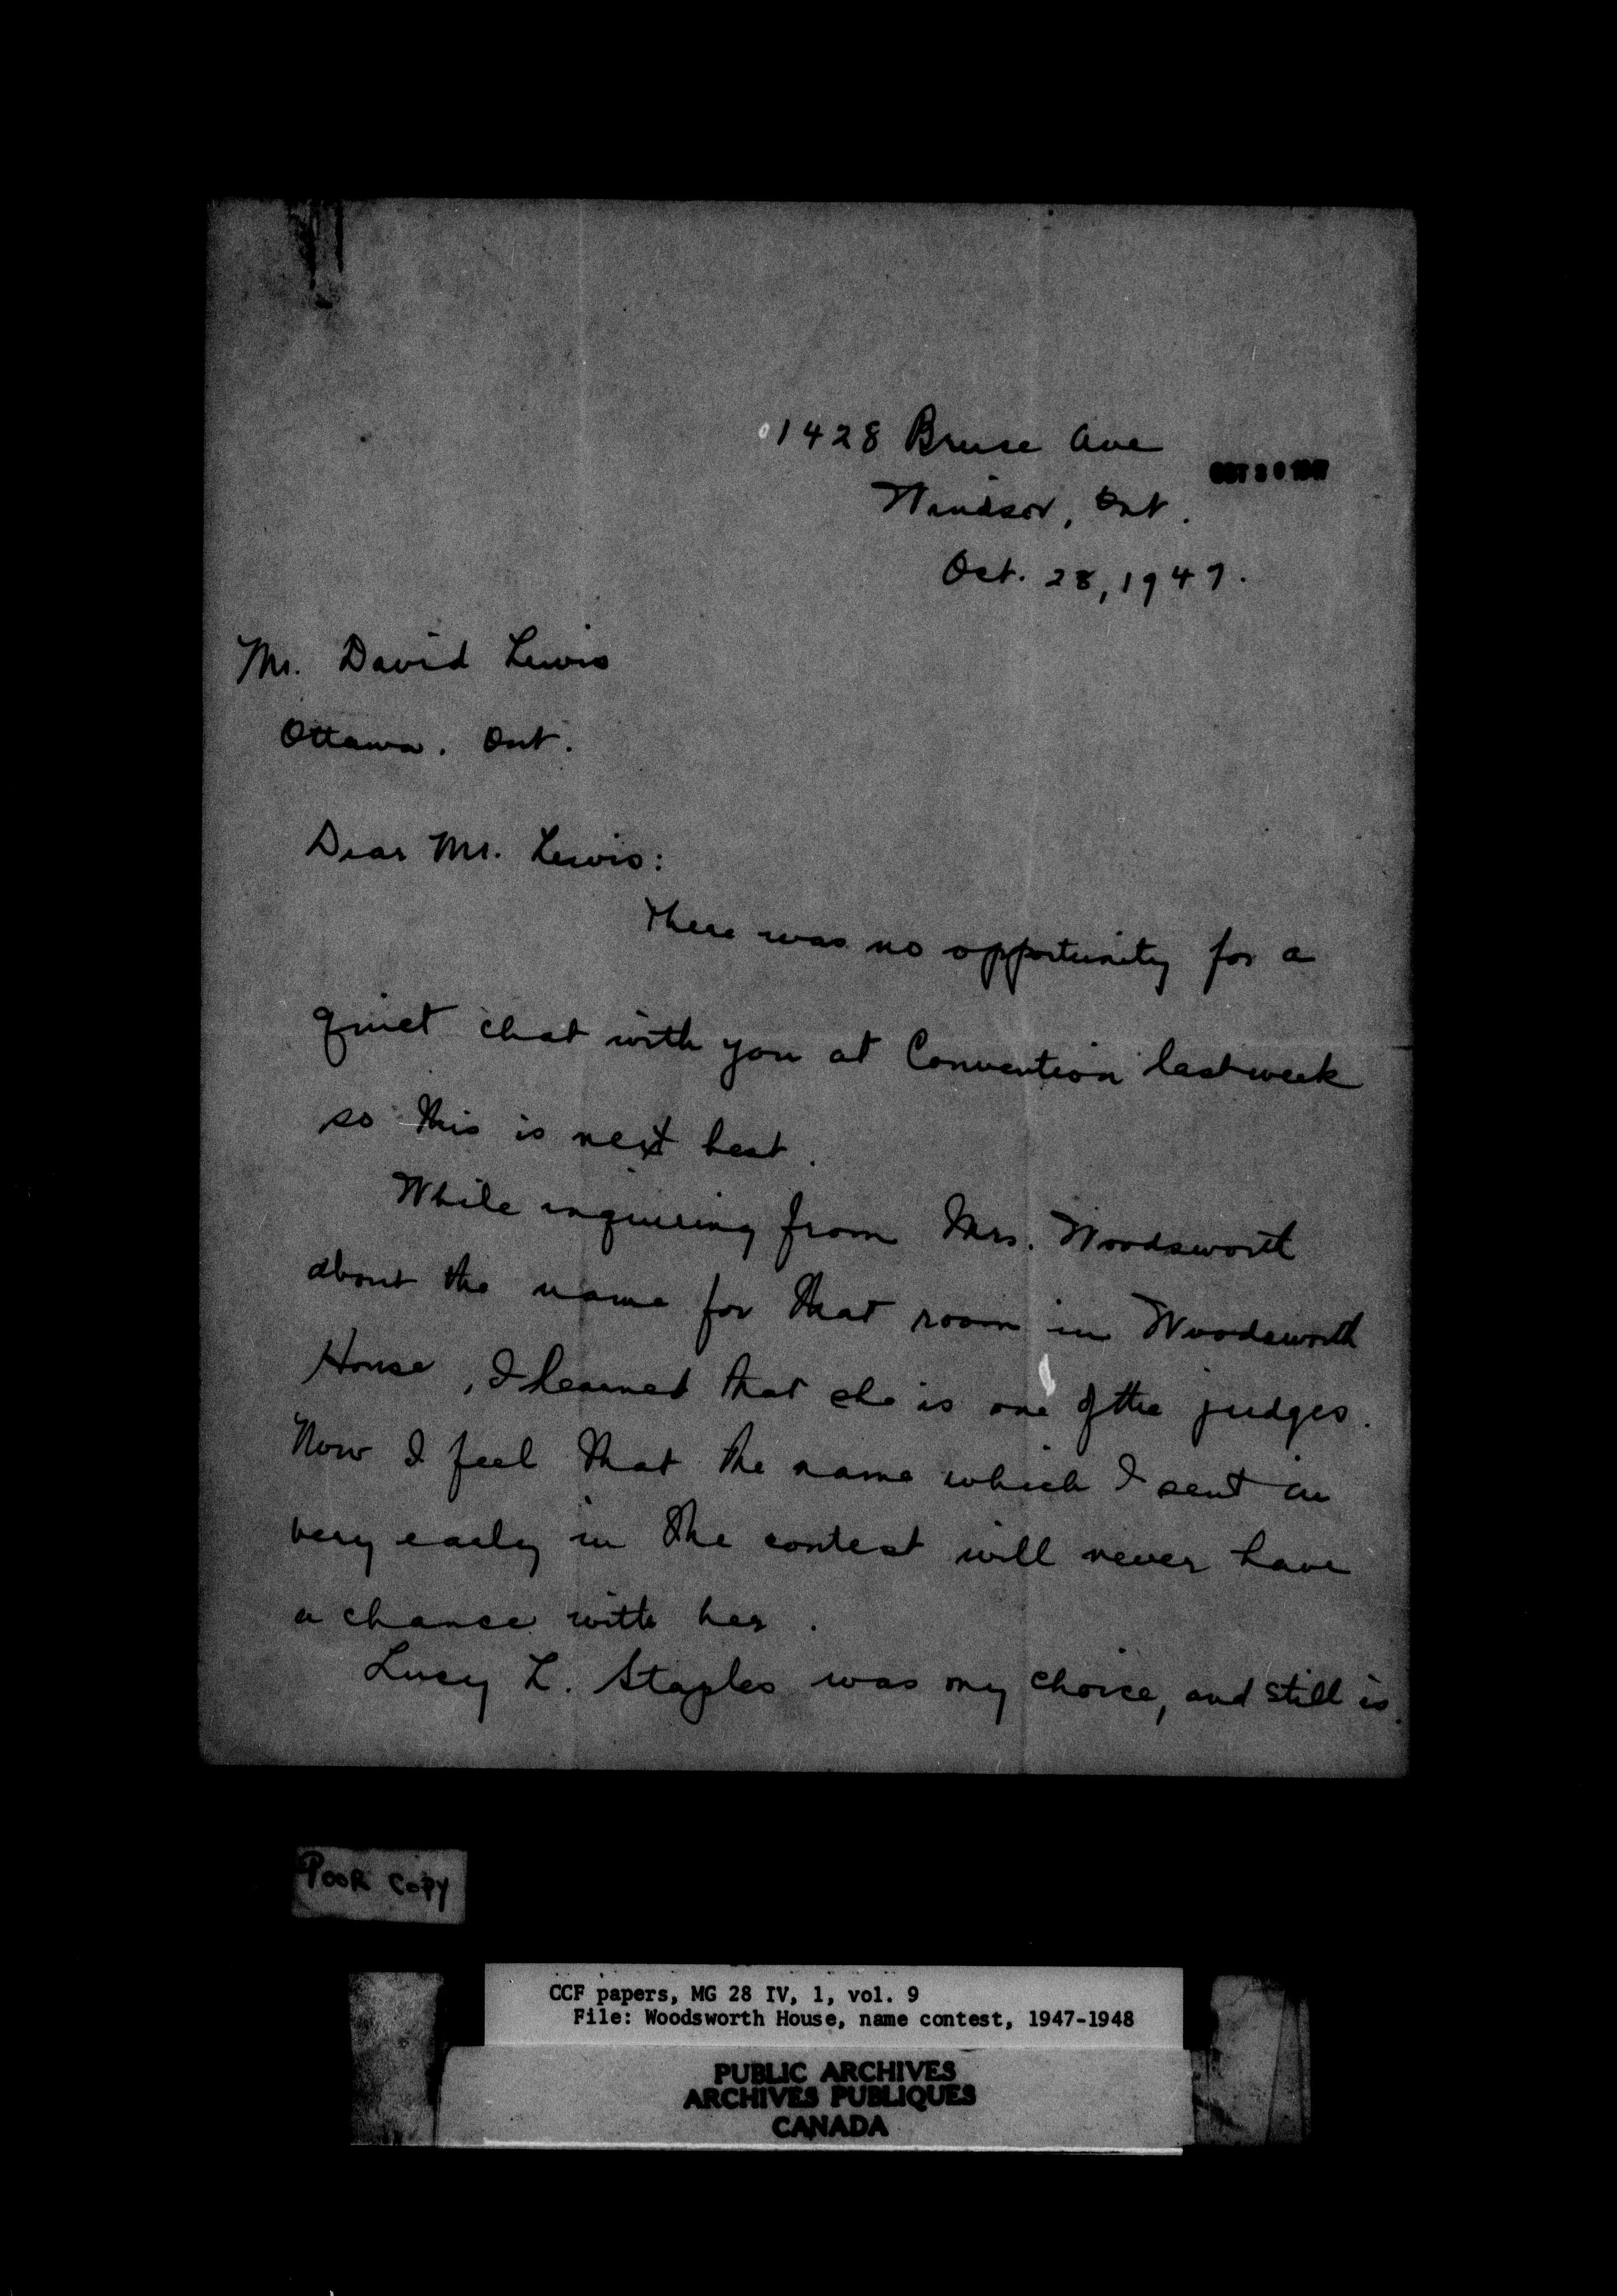 1428 Bruce Ave
OCT 30 1947
Windsor, Ont.
Oct. 28, 1947.
Mr. David Lewis
Ottawa. Ont.
Dear Mr. Lewis:
There was no opportunity for a
quiet chat with you at Convention last week
so this is next best.
While inquiring from Mrs. Woodsworth
about the name for that room in Woodsworth
House, I learned that she is one of the judges.
Now I feel that the name which I sent in
very early in the contest will never have
a chance with her.
Lucy L. Staples was my choice, and still is.
POOR COPY
CCF papers, MG 28 IV, 1, vol. 9
File: Woodsworth House, name contest, 1947-1948
PUBLIC ARCHIVES
ARCHIVES PUBLIQUES
CANADA